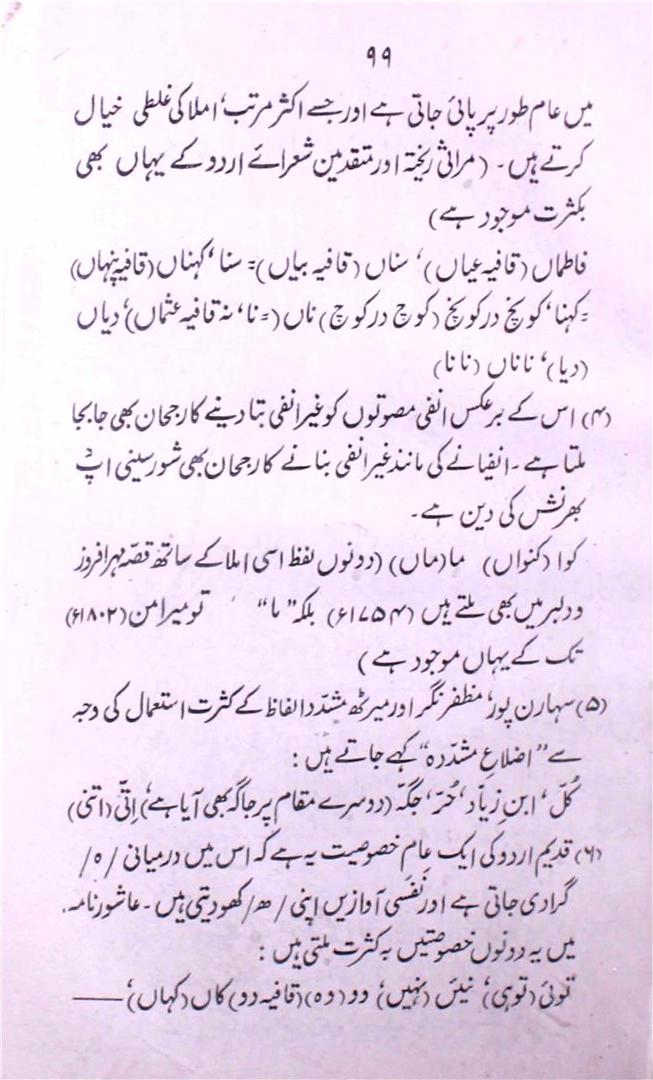 ۹۹
میں عام طور پر پائی جاتی ہے اور جسے اکثر مرتب، املا کی غلطی خیال
کرتے ہیں۔ (مراثی ریختہ اور متقدمین شعرائے اردو کے یہاں بھی
بکثرت موجود ہے)
فاطماں (قافیہ عیاں)، سناں (قافیہ بیاں)= سنا، کہناں (قافیہ پنہاں)
= کہنا، کونچ در کونچ (کوچ در کوچ) ناں (= نا، نہ قافیہ عثماں)، دیاں
(دیا)، ناناں (نانا)
(۴) اس کے برعکس انفی مصوتوں کو غیر انفی بنا دینے کا رجحان بھی جا بجا
ملتا ہے۔ انفیانے کی مانند غیر انفی بنانے کا رجحان بھی شورسینی اپ
بھرنش کی دین ہے۔
کوا (کنواں) ما (ماں) (دونوں لفظ اسی املا کے ساتھ قصّہ مہر افروز
و دلبر میں بھی ملتے ہیں (۱۷۵۴ء) بلکہ "ما" تو میر امن (۱۸۰۲ء)
تک کے یہاں موجود ہے)
(۵) سہارن پور، مظفر نگر اور میرٹھ مشدّد الفاظ کے کثرت استعمال کی وجہ
سے "اضلاعِ مشدّدہ" کہے جاتے ہیں:
کُلّ، ابنِ زیاد، حُرّ، جگّہ (دوسرے مقام پر جاگہ بھی آیا ہے)، اِتّی (اتنی)
(۶) قدیم اردو کی ایک عام خصوصیت یہ ہے کہ اس میں درمیانی /ہ/
گرا دی جاتی ہے اور نَفَسی آوازیں اپنی /ھ/ کھو دیتی ہیں۔ عاشور نامہ
میں یہ دونوں خصوصیتیں بہ کثرت ملتی ہیں:
توئی (توہی)، نئیں (نہیں)، دو (وہ) (قافیہ دو) کاں (کہاں)، ——